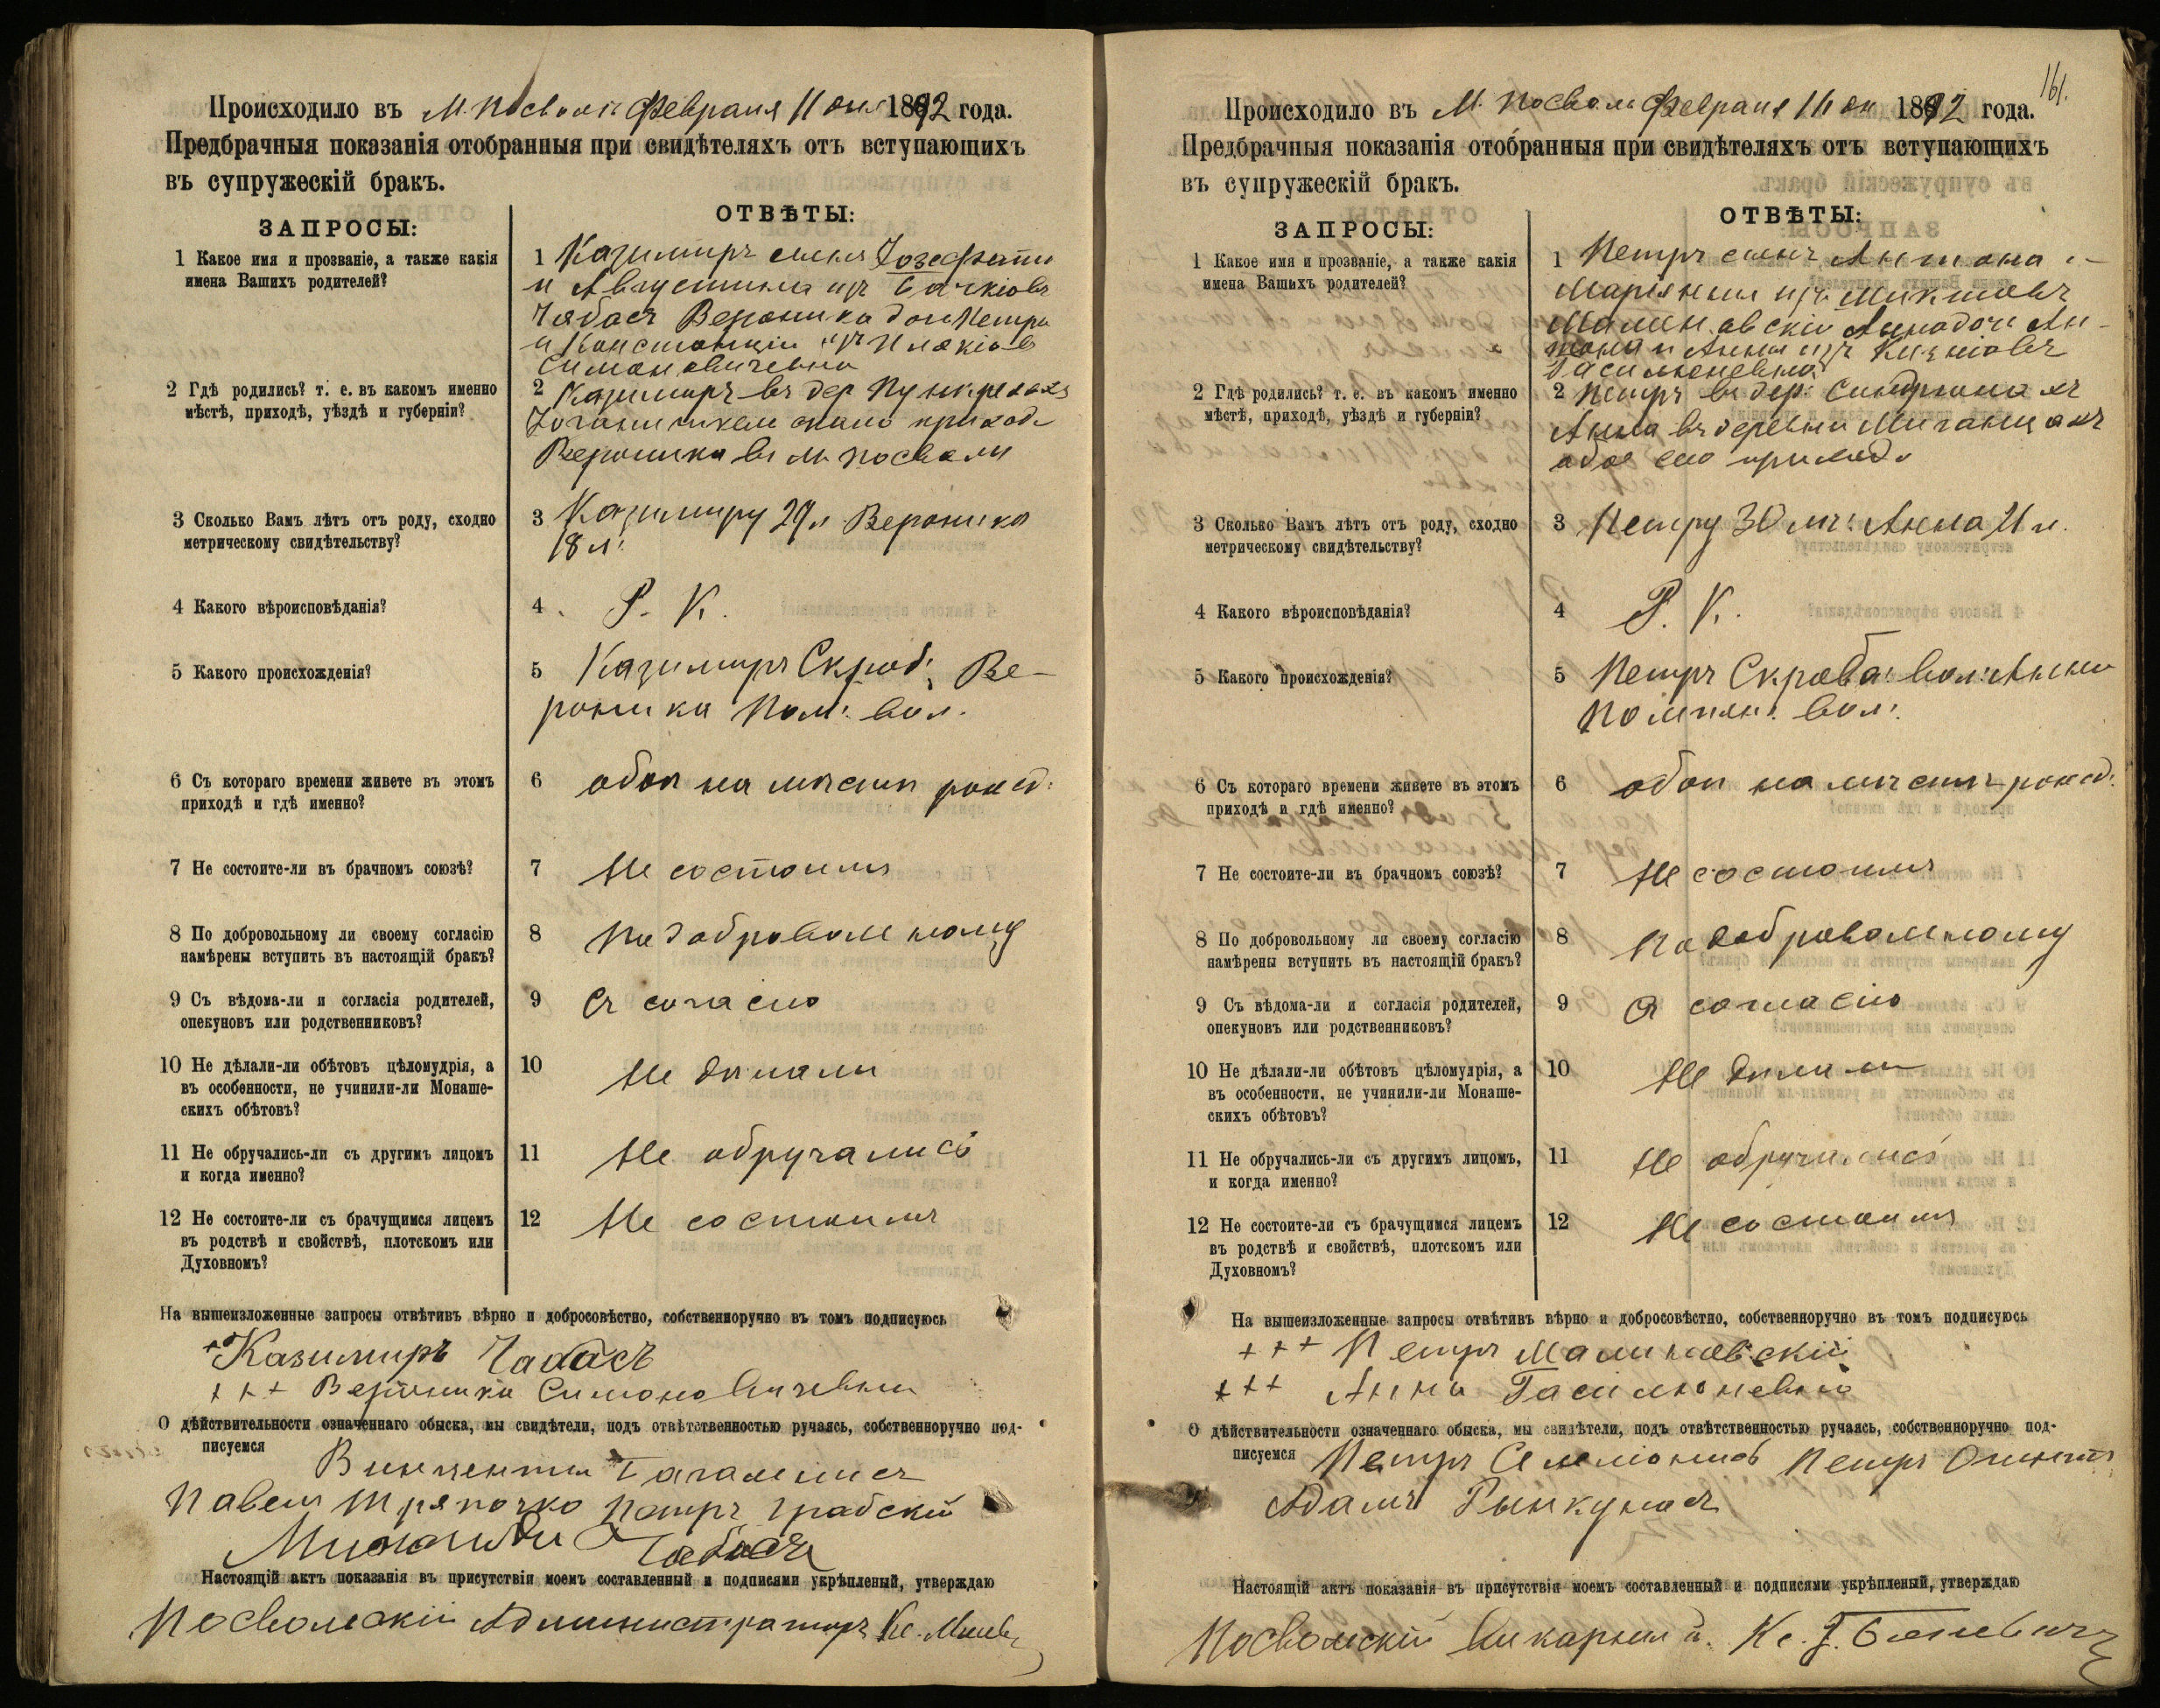 Происходило въ М. Посволи Февраля 11 дня 1892 года.
Предбрачныя показанія отобранныя при свидѣтеляхъ отъ вступающихъ
въ супружескій бракъ.
ЗАПРОСЫ:
ОТВѢТЫ:
1 Какое имя и прозваніе, а также какія
имена Вашихъ родителей?
1 Казимиръ сынъ Іозефата
и Августины изъ
Чабасъ Вероника дочь Петра
и Констанціи изъ
Симановичевна
2 Гдѣ родились? т. е. въ какомъ именно
мѣстѣ, приходѣ, уѣздѣ и губерніи?
2 Казимиръ въ дер
Вероника въ м Посволи
3 Сколько Вамъ лѣтъ отъ роду, сходно
метрическому свидѣтельству?
3 Казимиру 29 л Вероника
18 л:
4 Какого вѣроисповѣданія?
4 Р. К.
5 Какого происхожденія?
5 Казимиръ Скроб: Ве-
роника Пом: вол.
6 Съ котораго времени живете въ этомъ
приходѣ и гдѣ именно?
6 обои на мѣстѣ рожд:
7 Не состоите-ли въ брачномъ союзѣ?
7 Не состоимъ
8 По добровольному ли своему согласію
намѣрены вступить въ настоящій бракъ?
8 По добровольному
9 Съ вѣдома-ли и согласія родителей,
опекуновъ или родственниковъ?
9 Съ согласію
10 Не дѣлали-ли обѣтовъ цѣломудрія, а
въ особенности, не учинили-ли Монаше-
скихъ обѣтовъ?
10 Не дѣлали
11 Не обручались-ли съ другимъ лицомъ
и когда именно?
11 Не обручались
12 Не состоите-ли съ брачущимся лицемъ
въ родствѣ и свойствѣ, плотскомъ или
Духовномъ?
12 Не состоимъ
На вышеизложенные запросы отвѣтивъ вѣрно и добросовѣстно, собственноручно въ томъ подписуюсь
Казимиръ Чабасъ
+ + + Вероника Симоновичевна
О дѣйствительности означеннаго обыска, мы свидѣтели, подъ отвѣтственностью ручаясь, собственноручно под-
писуемся
Винцентый
Павелъ Тряпочко Петръ Грабскій
Чабасъ
Настоящій актъ показанія въ присутствіи моемъ составленный и подписями укрѣпленый, утверждаю
Посвольскій Администраторъ Кс.
161.
Происходило въ М. Посволи Февраля 11 дн 1892 года.
Предбрачныя показанія отобранныя при свидѣтеляхъ отъ вступающихъ
въ супружескій бракъ.
ЗАПРОСЫ:
ОТВѢТЫ:
1 Какое имя и прозваніе, а также какія
имена Вашихъ родителей?
1 Петръ сынъ Антона и
Маріянны изъ
Малиновскій Анна дочь Ан-
тона и Анны изъ
Гасилюневна
2 Гдѣ родились? т. е. въ какомъ именно
мѣстѣ, приходѣ, уѣздѣ и губерніи?
2 Петръ въ дер:
Анна въ деревни
обое сего прихода
3 Сколько Вамъ лѣтъ отъ роду, сходно
метрическому свидѣтельству?
3 Петру 30 лѣт: Анна 21 л.
4 Какого вѣроисповѣданія?
4 Р. К.
5 Какого происхожденія?
5 Петръ Скроба: вол: Анна
Помпян: вол:
6 Съ котораго времени живете въ этомъ
приходѣ и гдѣ именно?
6 обои на мѣстѣ рожд:
7 Не состоите-ли въ брачномъ союзѣ?
7 Не состоимъ
8 По добровольному ли своему согласію
намѣрены вступить въ настоящій бракъ?
8 По добровольному
9 Съ вѣдома-ли и согласія родителей,
опекуновъ или родственниковъ?
9 Съ согласію
10 Не дѣлали-ли обѣтовъ цѣломудрія, а
въ особенности, не учинили-ли Монаше-
скихъ обѣтовъ?
10 Не дѣлали
11 Не обручались-ли съ другимъ лицомъ,
и когда именно?
11 Не обручались
12 Не состоите-ли съ брачущимся лицемъ
въ родствѣ и свойствѣ, плотскомъ или
Духовномъ?
12 Не состоимъ
На вышеизложенные запросы отвѣтивъ вѣрно и добросовѣстно, собственноручно въ томъ подписуюсь
+ + + Петръ Малиновскій
+ + + Анна Гасилюневна
О дѣйствительности означеннаго обыска, мы свидѣтели, подъ отвѣтственностью ручаясь, собственноручно под-
писуемся Петръ Петръ
Адамъ Рынкунасъ
Настоящій актъ показанія въ присутствіи моемъ составленный и подписями укрѣпленый, утверждаю
Посвольскій Викарный Кс. І.